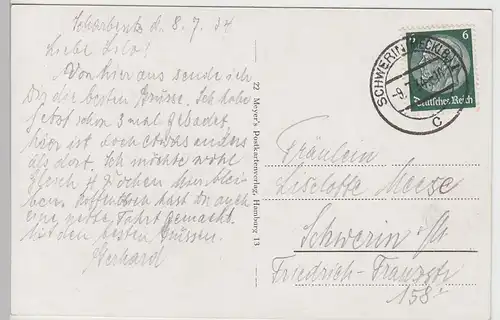 Scharbeutz d. 8. 7. 34
Liebe Lilo!
Von hier aus sende ich
Dir die besten Grüsse. Ich habe
jetzt schon 3 mal gebadet
hier ist doch etwas anders
als dort. Ich möchte wohl
gleich 4 Wochen hier blei-
ben. Hoffentlich hast Du auch
eine gute Fahrt gemacht.
Mit den besten Grüssen.
Gerhard
22 Meyer's Postkartenverlag, Hamburg 13
SCHWERIN (MECKLB)
-9.7.
C
6
Deutsches Reich
Fräulein
Liselotte Meese
Schwerin i/M
Friedrich-Franzstr
158